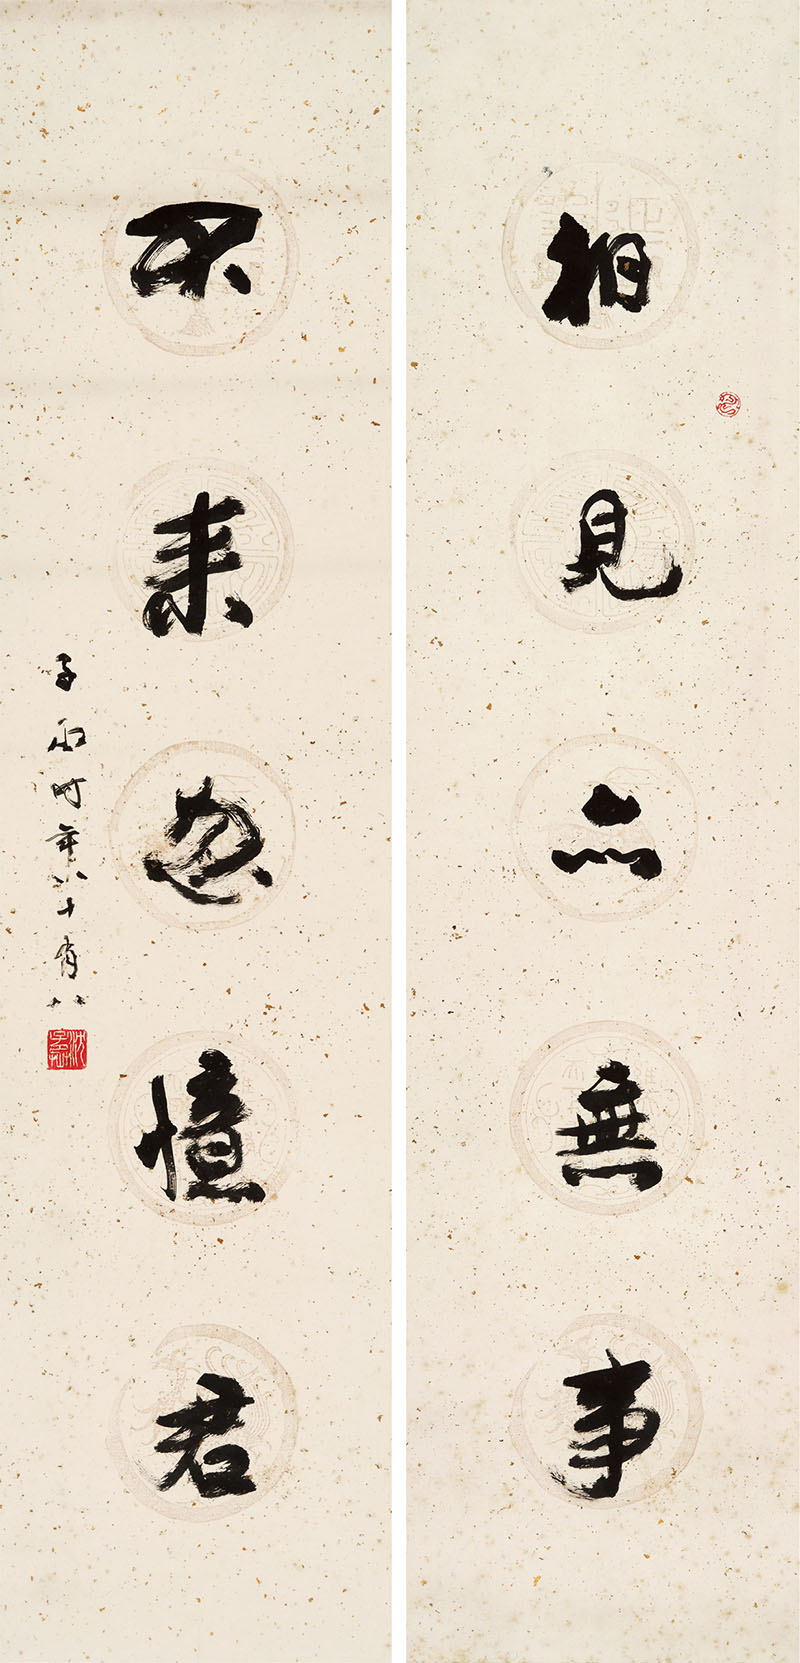 相見亦無事
不來忽憶君
子丞時年八十有八